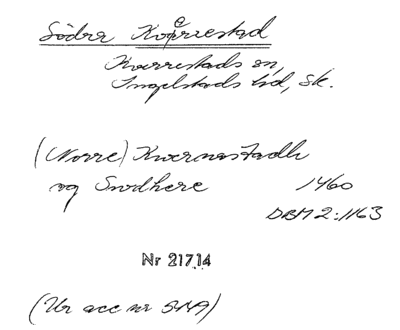 Södra Kverrestad
Kverrestads sn,
Ingelstads hd, Sk.
(Norre) Kwernastadh
og Swdhere 1460
DRM 2:1163
Nr 21714
(Ur acc nr SNA)